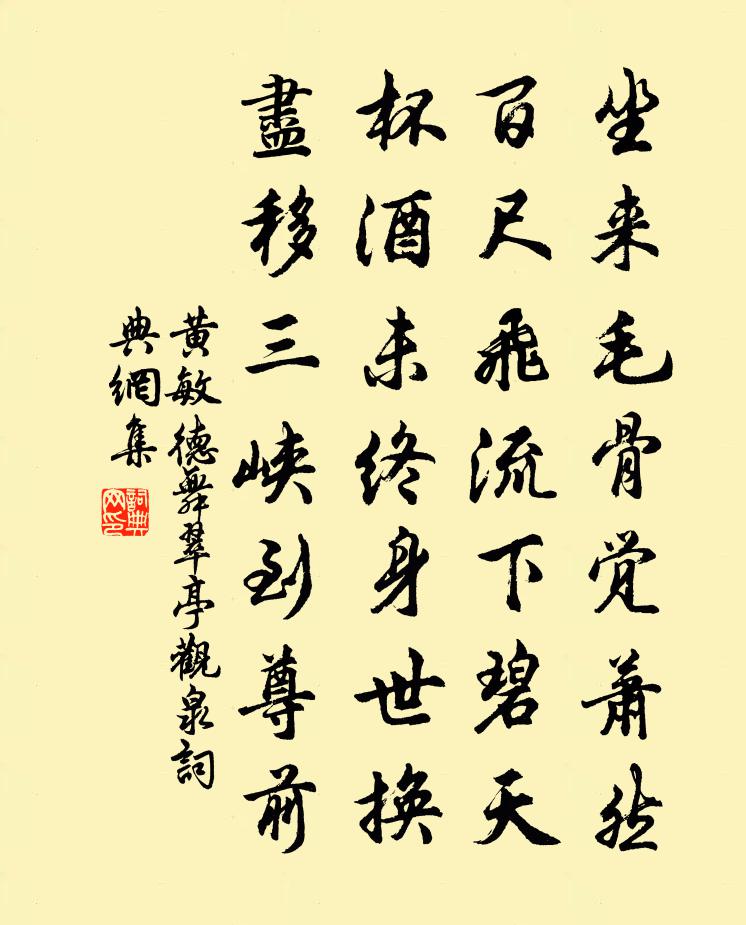 坐来毛骨觉萧然
百尺飛流下碧天
杯酒未终身世換
盡移三峡到尊前
黄敏德舞翠亭觀泉詞
典網集
詞典
网印